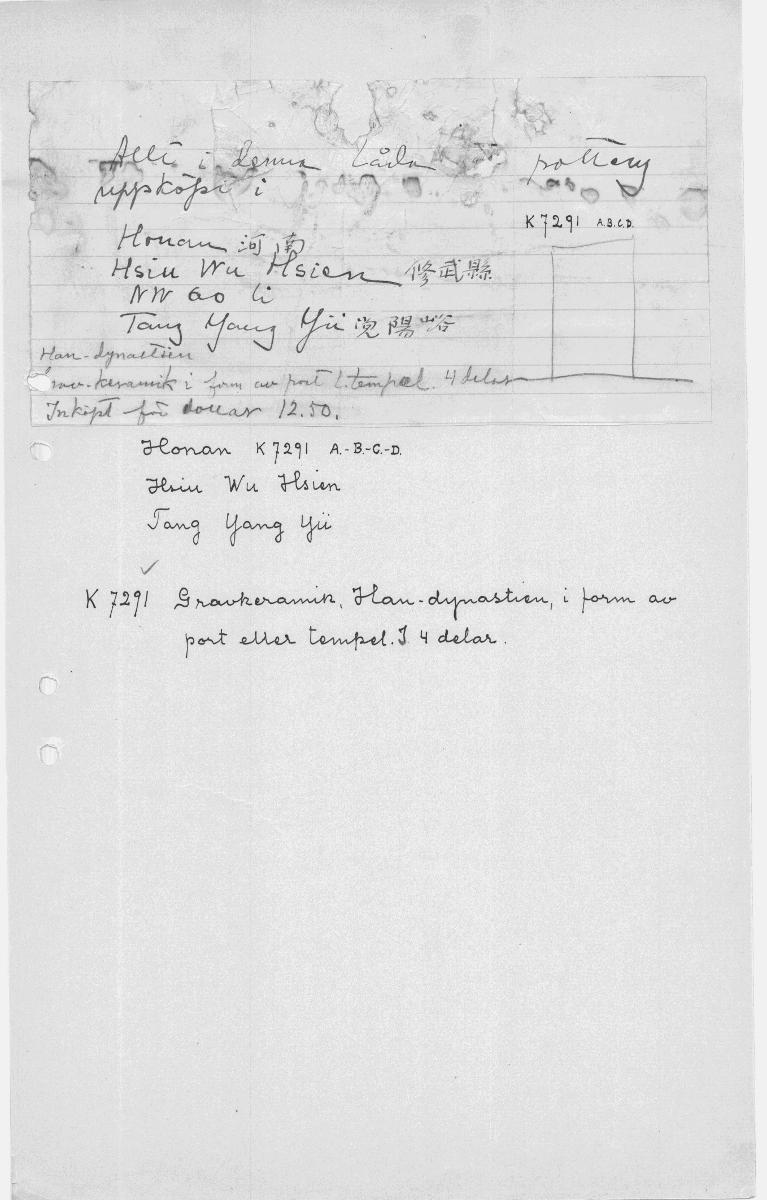 Allt i denna låda pottery
uppköpt i
K 7291 A.B.C.D.
Honan 河南
Hsiu Wu Hsien 修武縣
NW 60 li
Tang Yang Yü 党陽峪
Han-dynastien
Grav-keramik i form av port l. tempel. 4 delar
Inköpt för dollar 12.50.
Honan K 7291 A.-B.-C.-D.
Hsiu Wu Hsien
Tang Yang Yü
K 7291 Gravkeramik, Han-dynastien, i form av
port eller tempel. I 4 delar.